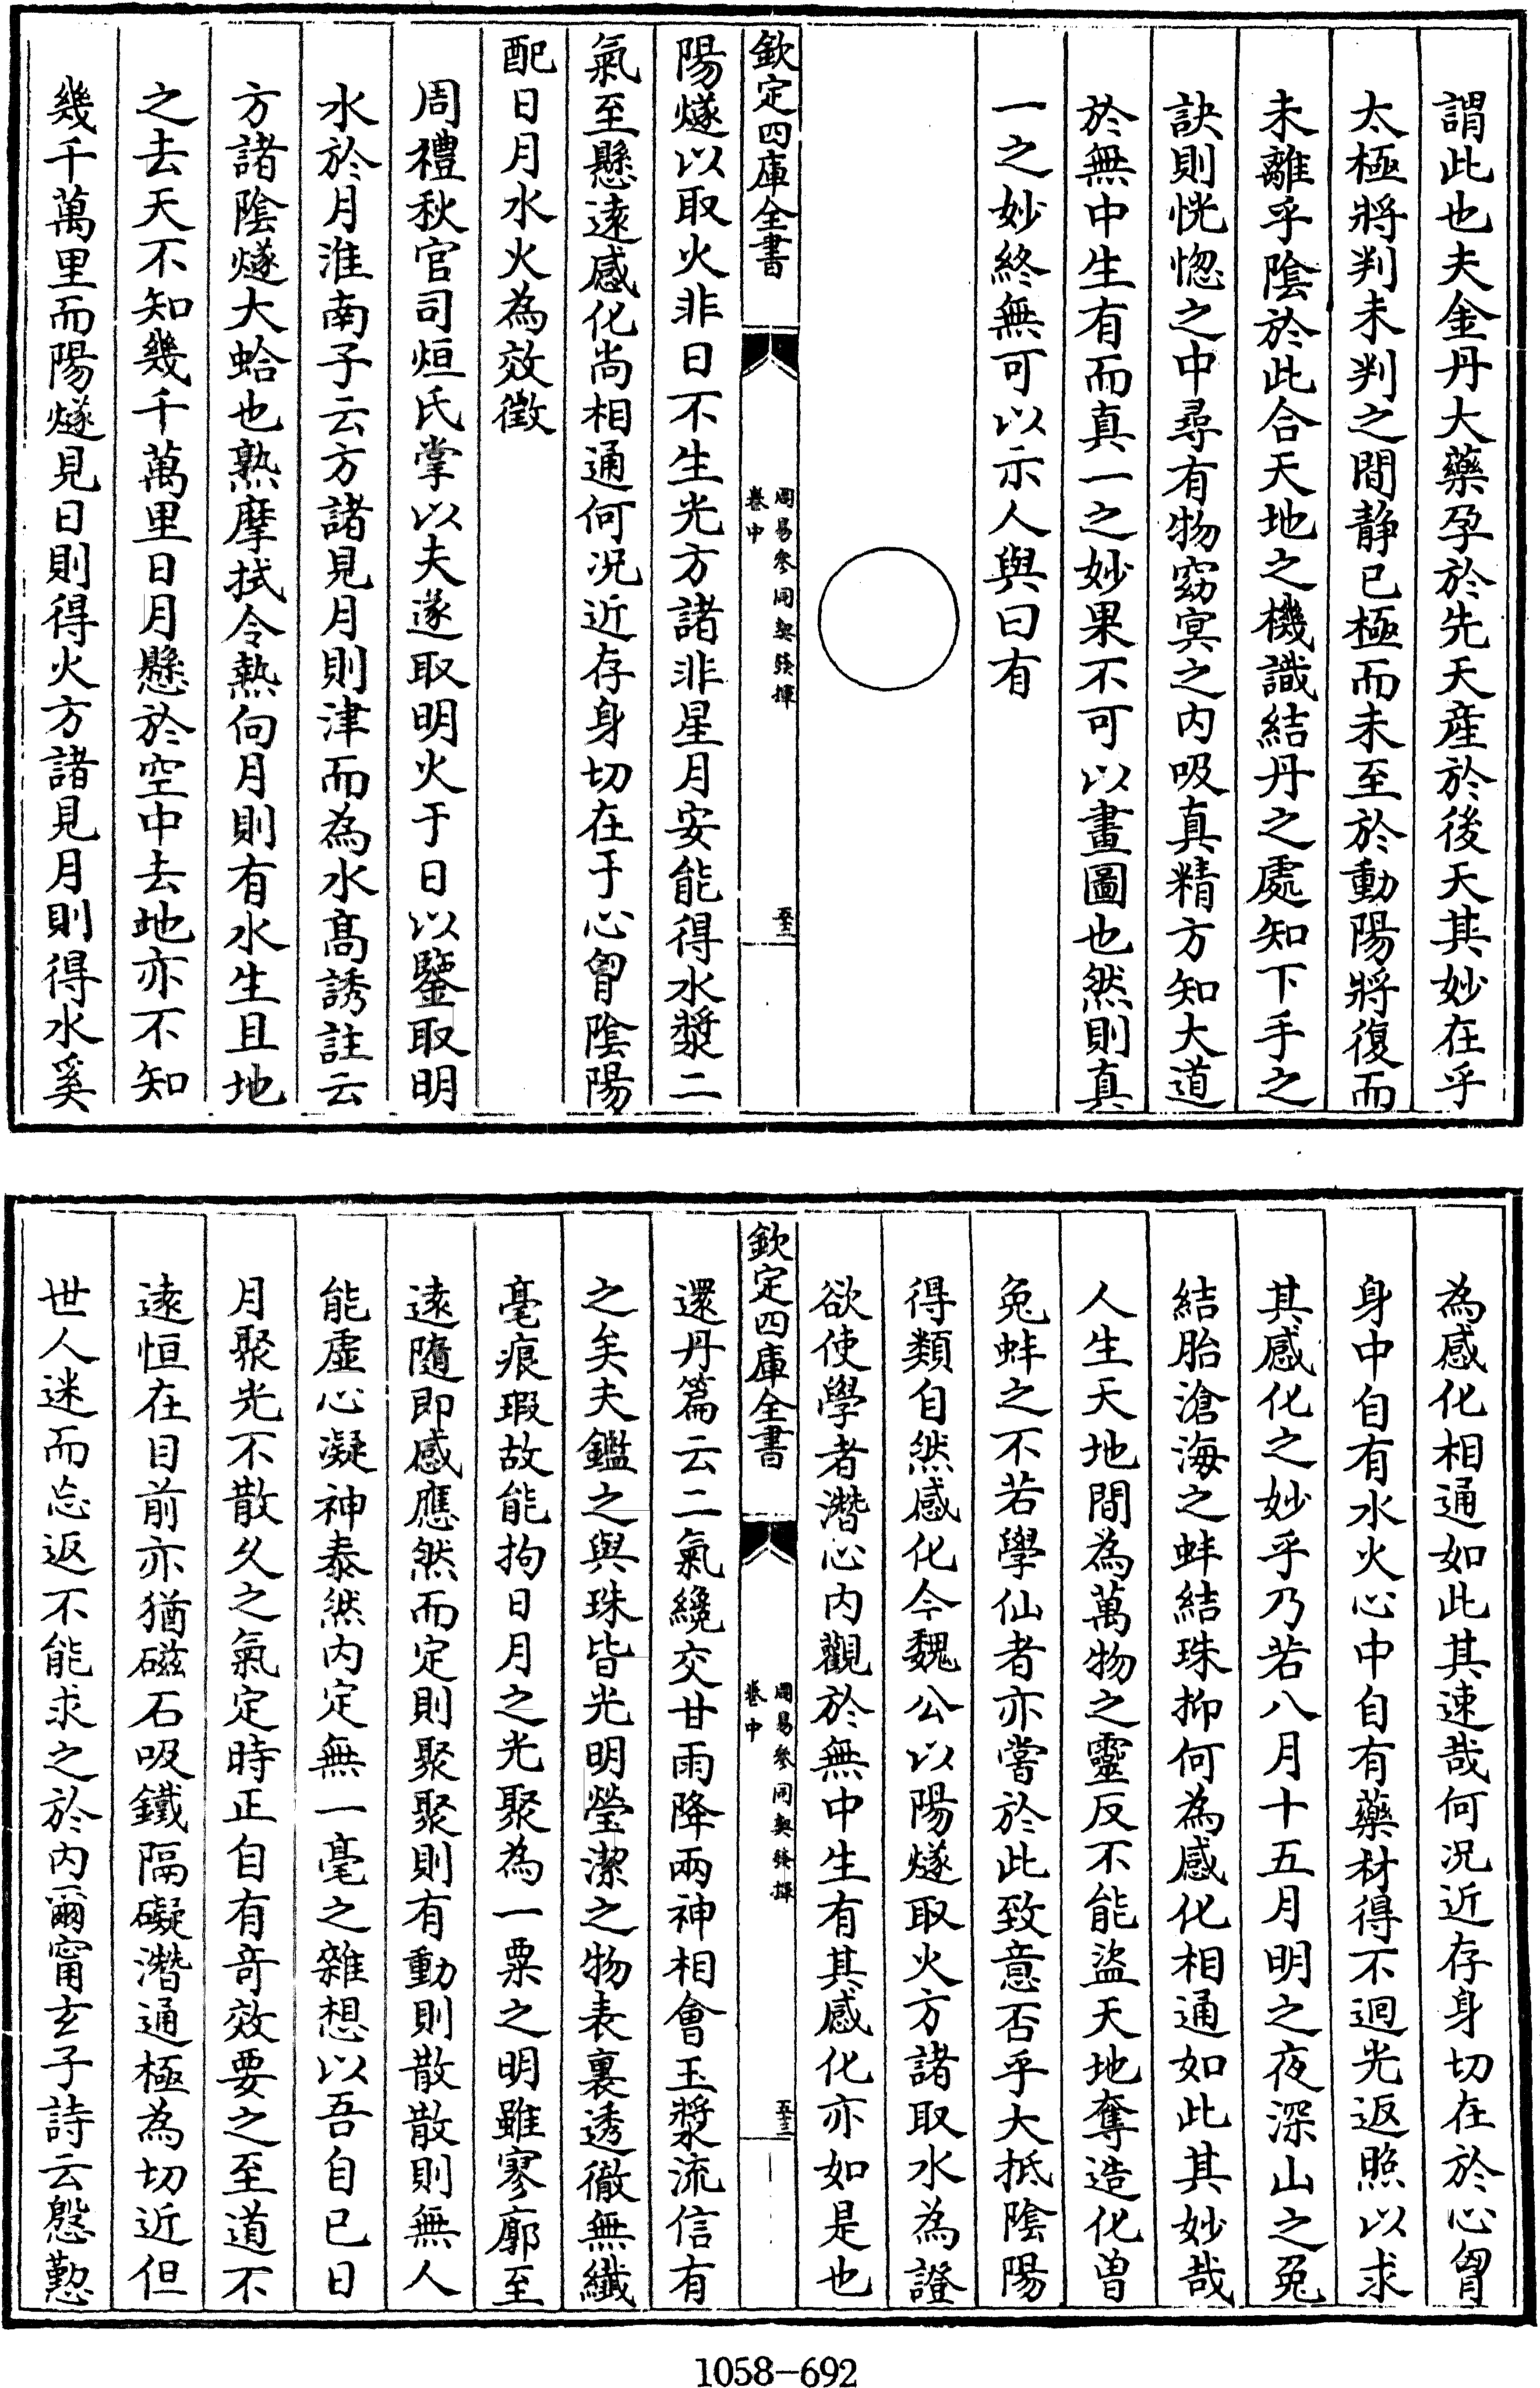 謂此也夫金丹大藥孕於先天產於後天其妙在乎
太極將判未判之間靜已極而未至於動陽將復而
未離乎陰於此合天地之機識結丹之處知下手之
訣則恍惚之中尋有物窈冥之内吸真精方知大道
於無中生有而真一之妙果不可以畫圖也然則真
一之妙終無可以示人與曰有
欽定四庫全書
周易參同契發揮
卷中
五十二
陽燧以取火非日不生光方諸非星月安能得水漿二
氣至懸逺感化尚相通何况近存身切在于心胷陰陽
配日月水火為效徵
周禮秋官司烜氏掌以夫遂取明火于日以鑒取明
水於月淮南子云方諸見月則津而為水髙誘註云
方諸陰燧大蛤也熟摩拭令熱向月則有水生且地
之去天不知幾千萬里日月懸於空中去地亦不知
幾千萬里而陽燧見日則得火方諸見月則得水奚
為感化相通如此其速哉何况近存身切在於心胷
身中自有水火心中自有藥材得不迴光返照以求
其感化之妙乎乃若八月十五月明之夜深山之兔
結胎滄海之蚌結珠抑何為感化相通如此其妙哉
人生天地間為萬物之靈反不能盜天地奪造化曽
兔蚌之不若學仙者亦嘗於此致意否乎大抵陰陽
得類自然感化今魏公以陽燧取火方諸取水為證
欲使學者潛心内觀於無中生有其感化亦如是也
欽定四庫全書
周易參同契發揮
卷中
五十三
還丹篇云二氣纔交甘雨降兩神相會玉漿流信有
之矣夫鑑之與珠皆光明瑩潔之物表裏透徹無纖
毫痕瑕故能拘日月之光聚為一粟之明雖寥廓至
逺隨即感應然而定則聚聚則有動則散散則無人
能虛心凝神泰然内定無一毫之雜想以吾自已日
月聚光不散久之氣定時正自有竒效要之至道不
逺恒在目前亦猶磁石吸鐵隔礙潛通極為切近但
世人迷而忘返不能求之於内爾甯玄子詩云慇懃
1058-692